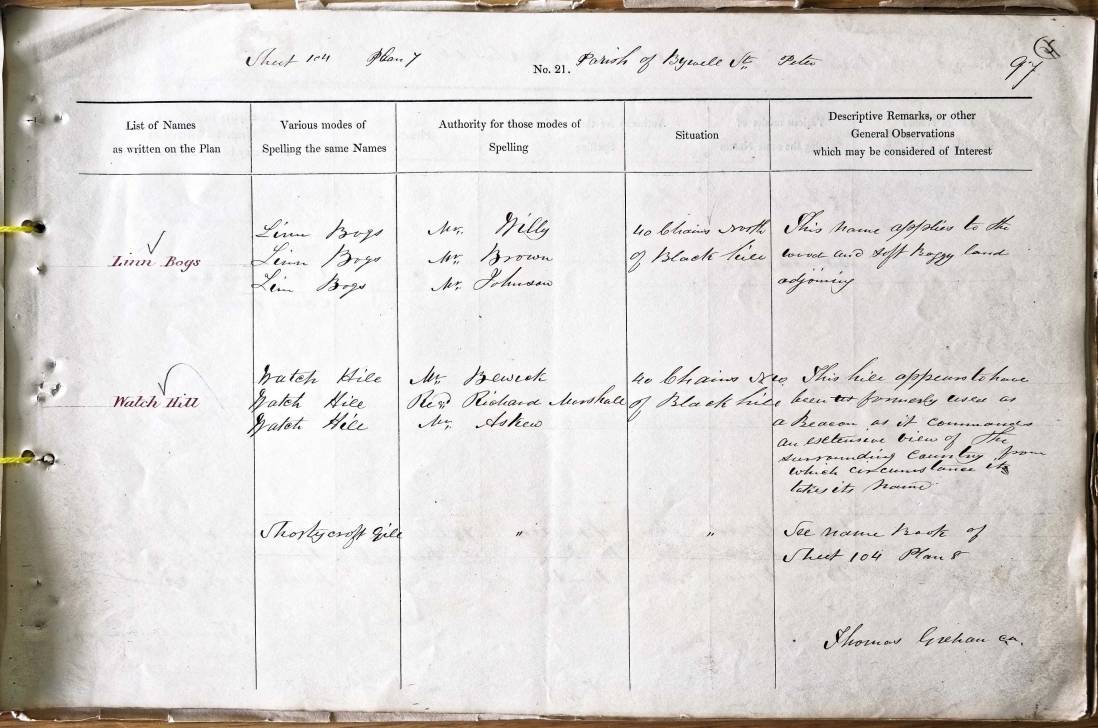 Sheet 104 Plan 7 No. 21. Parish of Bywell St. Peter 97
List of Names
as written on the Plan
Various modes of
Spelling the same Names
Authority for those modes of
Spelling
Situation
Descriptive Remarks, or other
General Observations
which may be considered of Interest
Linn Bogs
Linn Bogs
Linn Bogs
Linn Bogs
Mr. Willy
Mr. Brown
Mr. Johnson
40 Chains North
of Black hill
This name applies to the
wood and soft boggy land
adjoining
Watch Hill
Watch Hill
Watch Hill
Watch Hill
Mr. Bewick
Revd. Richard Marshall
Mr. Askew
40 Chains
of Black hill
This hill appears to have
been formerly used as
a Beacon as it commands
an extensive view of the
surrounding Country from
which circumstance it
takes its name
Shortycroft Gill
"
"
See name Book of
Sheet 104 Plan 8
Thomas ca.